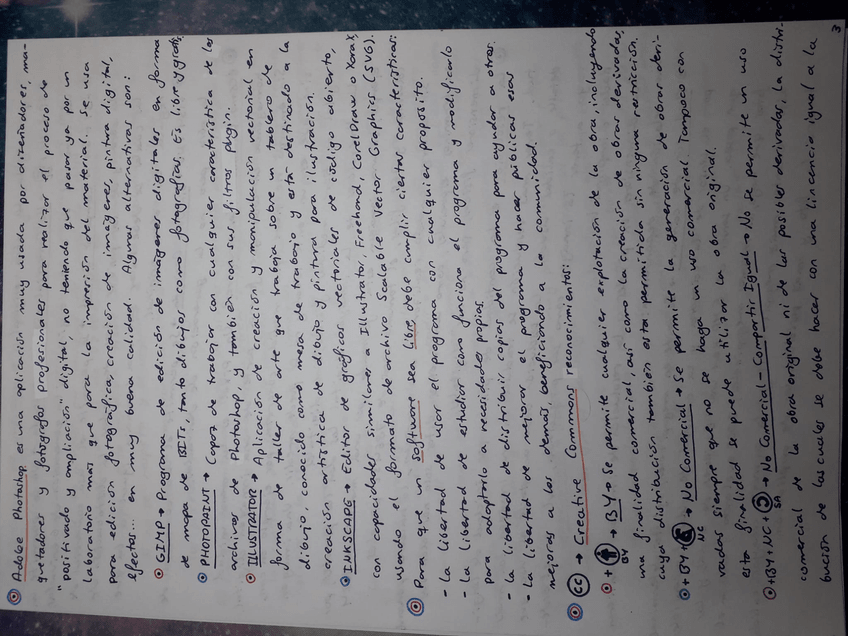 Adobe Photoshop es una aplicación muy usada por diseñadores, ma-
quetadores y fotografos profesionales para realizar el proceso de
"positivado y ampliación" digital, no teniendo que pasar ya por un
laboratorio más que para la impresión del material. Se usa
para edición fotográfica, creación de imágenes, pintura digital,
efectos... en muy buena calidad. Algunas alternativas son:
GIMP → Programa de edición de imágenes digitales en forma
de mapa de BITs, tanto dibujos como fotografías. Es libre y gratis.
PHOTOPAINT → Capaz de trabajar con cualquier característica de los
archivos de Photoshop, y también con sus filtros plugin.
ILLUSTRATOR → Aplicación de creación y manipulación vectorial en
forma de taller de arte que trabaja sobre un tablero de
dibujo, conocido como mesa de trabajo y está destinado a la
creación artística de dibujo y pintura para ilustración.
INKSCAPE → Editor de gráficos vectoriales de código abierto,
con capacidades similares a Illustrator, Freehand, CorelDraw o Xara X,
usando el formato de archivo Scalable Vector Graphics (SVG).
Para que un software sea libre debe cumplir ciertas características:
- La libertad de usar el programa con cualquier propósito.
- La libertad de estudiar como funciona el programa y modificarlo
para adaptarlo a necesidades propias.
- La libertad de distribuir copias del programa para ayudar a otros.
- La libertad de mejorar el programa y hacer públicas esas
mejoras a los demás, beneficiando a la comunidad.
CC → Creative Commons reconocimientos:
+ BY → BY → Se permite cualquier explotación de la obra, incluyendo
una finalidad comercial, así como la creación de obras derivadas,
cuya distribución también esta permitida sin ninguna restricción.
+ BY + NC → No Comercial → Se permite la generación de obras deri-
vadas siempre que no se haga un uso comercial. Tampoco con
esta finalidad se puede utilizar la obra original.
+ BY + NC + SA → No Comercial - Compartir Igual → No se permite un uso
comercial de la obra original ni de las posibles derivadas, la distri-
bución de las cuales se debe hacer con una lincencia igual a la
3